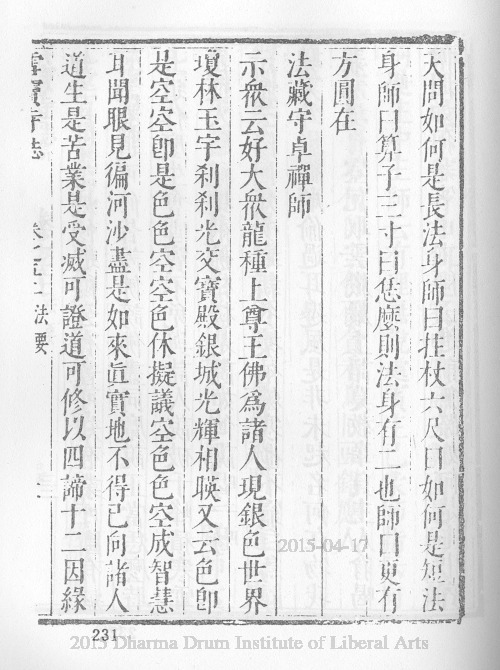 天問如何是長法身師曰拄杖六尺曰如何是短法
身師曰算子三寸曰恁麼則法身有二也師曰更有
方圓在
法藏守卓禪師
示眾云好大眾龍種上尊王佛為諸人現銀色世界
瓊林玉宇剎剎光交寶殿銀城光輝相暎又云色即
是空空即是色色空空色休擬議空色色空成智慧
耳聞眼見徧河沙盡是如來眞實地不得已向諸人
道生是苦業是受滅可證道可修以四諦十二因緣
雪竇寺志 法要
231
2015-04-17
2015 Dharma Drum Institute of Liberal Arts